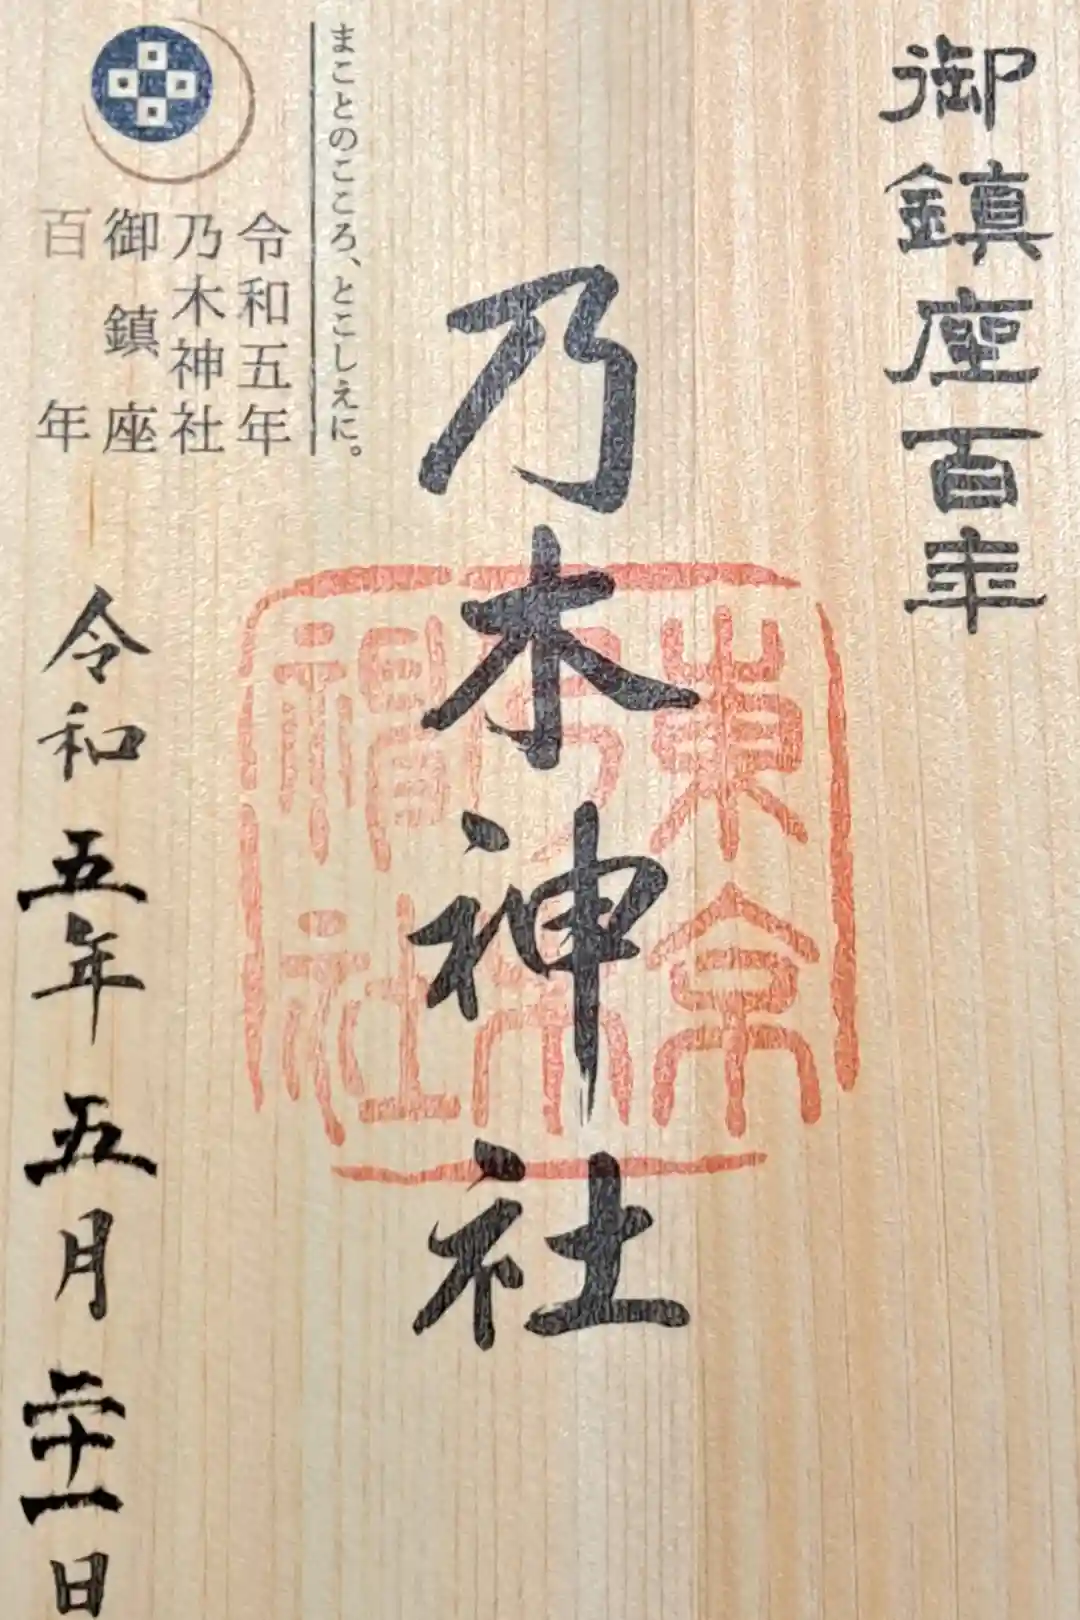 御鎮座百年
乃木神社
東京
乃木
神社
まことのこころ、とこしえに。
令和五年
乃木神社
御鎮座
百年
令和五年五月二十一日